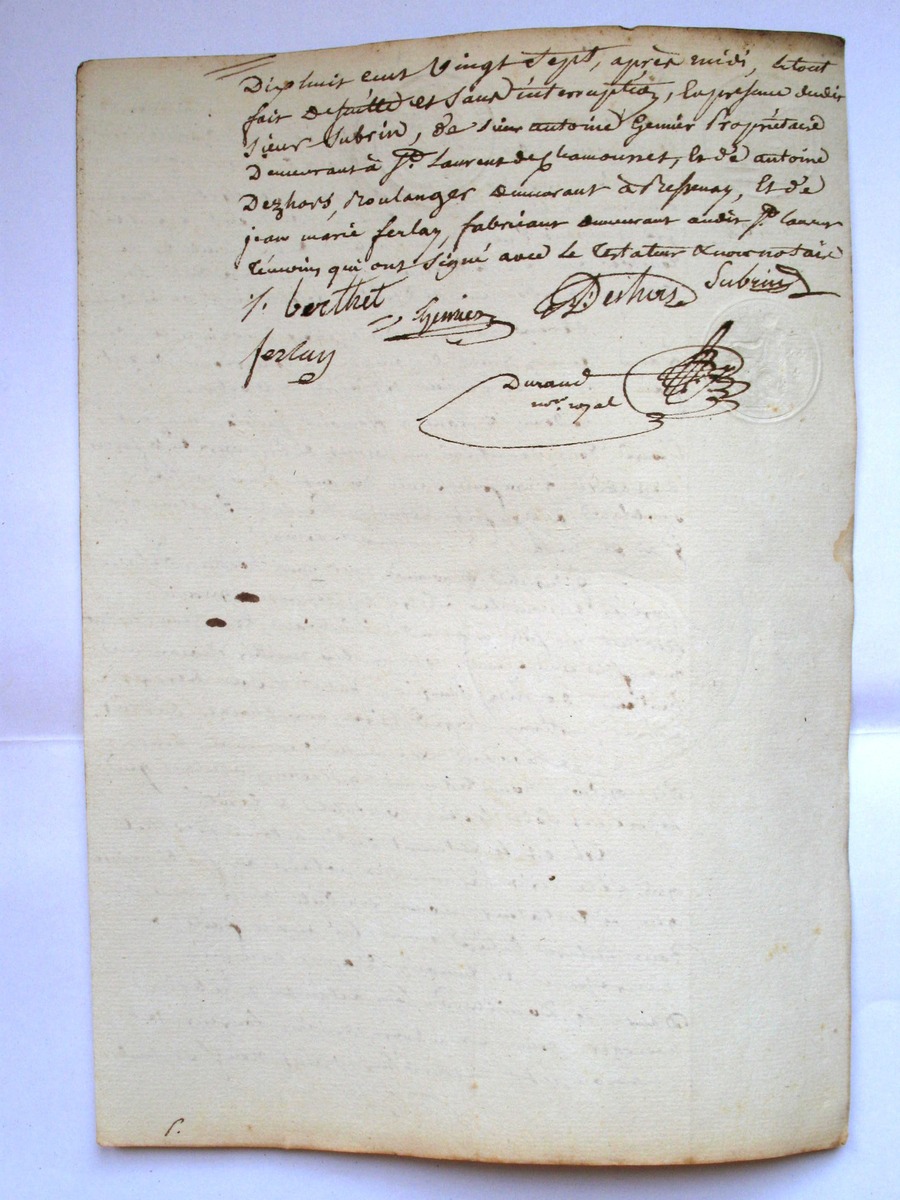 Dix huit cent Vingt Sept, après midi, le tout
fait de suitte et sans interruption, En présence dudit
Sieur Subrin, de Sieur antoine Genier Propriétaire
Demeurant à St. Laurent de Chamousset, Et de antoine
Dezhors, Boulanger demeurant à Bessenay, Et de
jean marie ferlay, fabricant demeurant audit St. Laurent
témoins qui ont signé avec le testateur & nous notaire
berthet Genier Deshors Subrin
ferlay
Durand
nore. royal